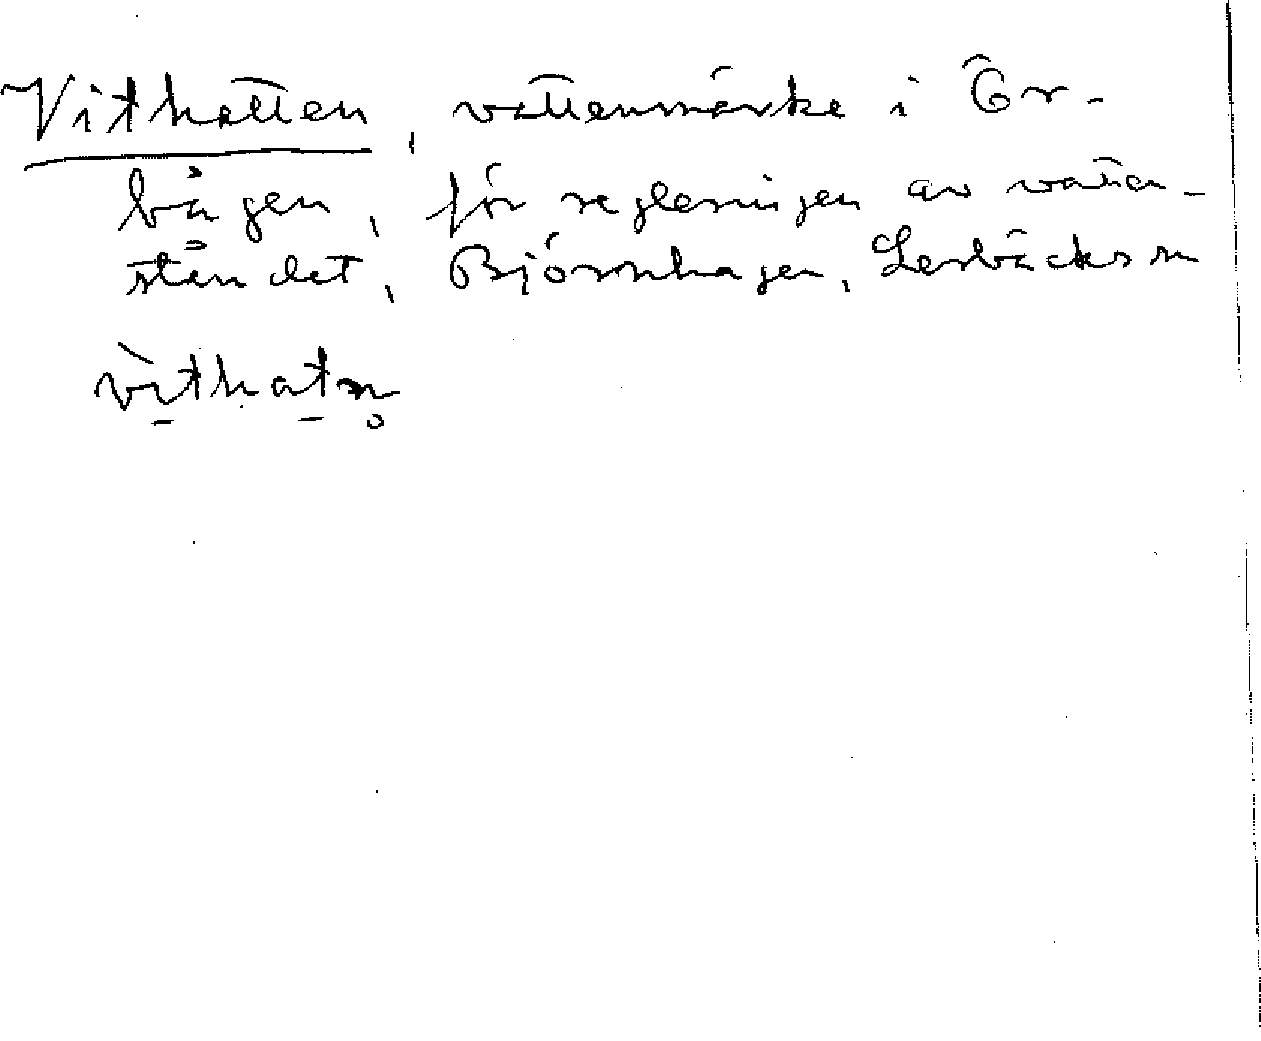 Vithatten, vattenmärke i Ör-
bågen, för regleringen av vatten-
ståndet, Björnhagen, Lerbäcks sn
vìthatn̥